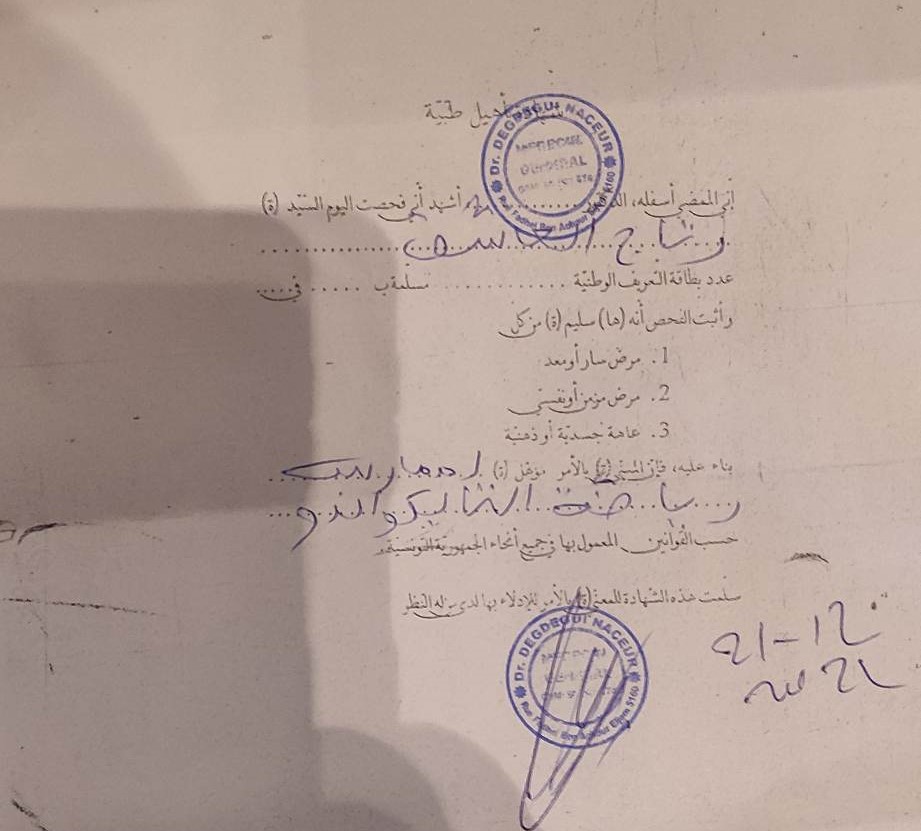 شهادة تأهيل طبية
Dr. DEGDEGUI NACEUR
MEDECIN
GENERAL
Rue Fadhel Ben Achour Eljem 5160
إني الممضي أسفله، الدكتور أشهد أني فحصت اليوم السيد (ة)
عدد بطاقة التعريف الوطنية ............ مسلمة ب ..... في .....
وأثبت الفحص أنه (ها) سليم (ة) من كل
1. مرض سار أو معد
2. مرض مزمن أو نفسي
3. عاهة جسدية أو ذهنية
بناء عليه، فإن المعني (ة) بالأمر مؤهل (ة) لممارسة
رياضة التايكواندو
حسب القوانين المعمول بها في جميع أنحاء الجمهورية التونسية.
سلمت هذه الشهادة للمعني (ة) بالأمر للإدلاء بها لدى من له النظر
21-12
2021
Dr. DEGDEGUI NACEUR
Rue Fadhel Ben Achour Eljem 5160